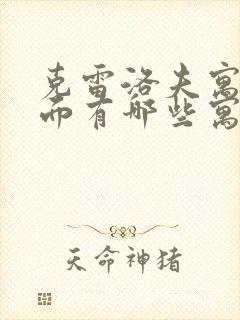 克雷洛夫寓
而有哪些寓
天命神猪